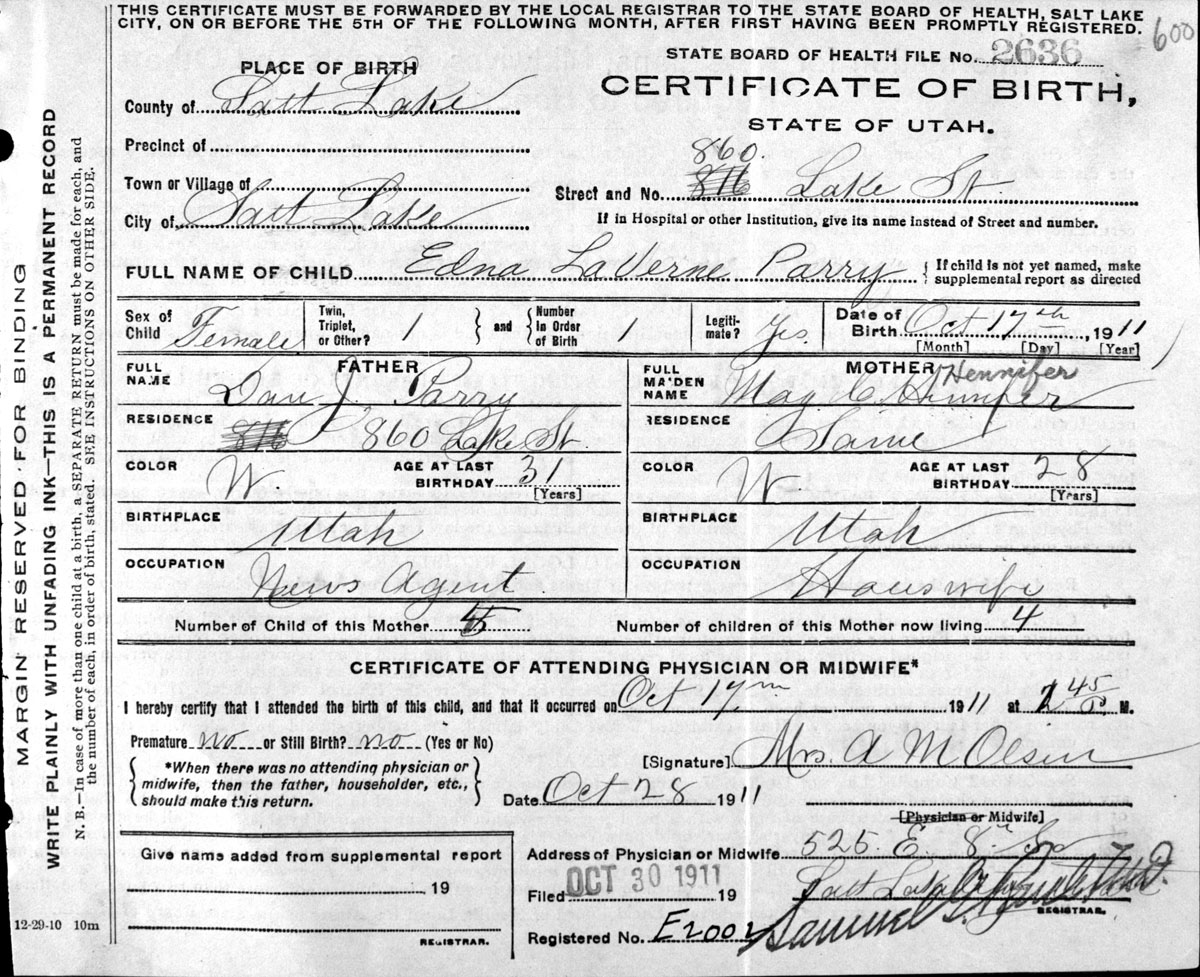 THIS CERTIFICATE MUST BE FORWARDED BY THE LOCAL REGISTRAR TO THE STATE BOARD OF HEALTH, SALT LAKE
CITY, ON OR BEFORE THE 5TH OF THE FOLLOWING MONTH, AFTER FIRST HAVING BEEN PROMPTLY REGISTERED.
600
STATE BOARD OF HEALTH FILE No. 2636
CERTIFICATE OF BIRTH,
STATE OF UTAH.
PLACE OF BIRTH
County of Salt Lake
Precinct of
Town or Village of
City of Salt Lake
860.
Street and No. 816 Lake St.
If in Hospital or other Institution, give its name instead of Street and number.
FULL NAME OF CHILD Edna LaVerne Parry { If child is not yet named, make
supplemental report as directed
Sex of Child Female
Twin, Triplet, or Other? 1 } and { Number In Order of Birth 1
Legiti-mate? Yes.
Date of Birth Oct 17th, 1911
[Month] [Day] [Year]
FATHER
FULL NAME Dan J. Parry
RESIDENCE 816 860 Lake St.
COLOR W. AGE AT LAST BIRTHDAY 31
[Years]
BIRTHPLACE Utah
OCCUPATION News Agent
MOTHER Hennifer
FULL MAIDEN NAME Mag. C.
RESIDENCE Same
COLOR W AGE AT LAST BIRTHDAY 28
[Years]
BIRTHPLACE Utah
OCCUPATION Houswife
Number of Child of this Mother 5
Number of children of this Mother now living 4
CERTIFICATE OF ATTENDING PHYSICIAN OR MIDWIFE*
I hereby certify that I attended the birth of this child, and that it occurred on Oct 17 1911 at 45 M.
Premature no or Still Birth? no (Yes or No)
{ *When there was no attending physician or
midwife, then the father, householder, etc.,
should make this return. }
[Signature] Mrs. A M Olsen
Date Oct 28 1911
[Physician or Midwife]
Give name added from supplemental report
19
REGISTRAR.
Address of Physician or Midwife 525. E. 8 So
Salt Lake
Filed OCT 30 1911 19
Samuel G.
REGISTRAR.
Registered No. E2002
12-29-10 10m
MARGIN RESERVED FOR BINDING
WRITE PLAINLY WITH UNFADING INK—THIS IS A PERMANENT RECORD
N. B.—In case of more than one child at a birth, a SEPARATE RETURN must be made for each, and
the number of each, in order of birth, stated. SEE INSTRUCTIONS ON OTHER SIDE.